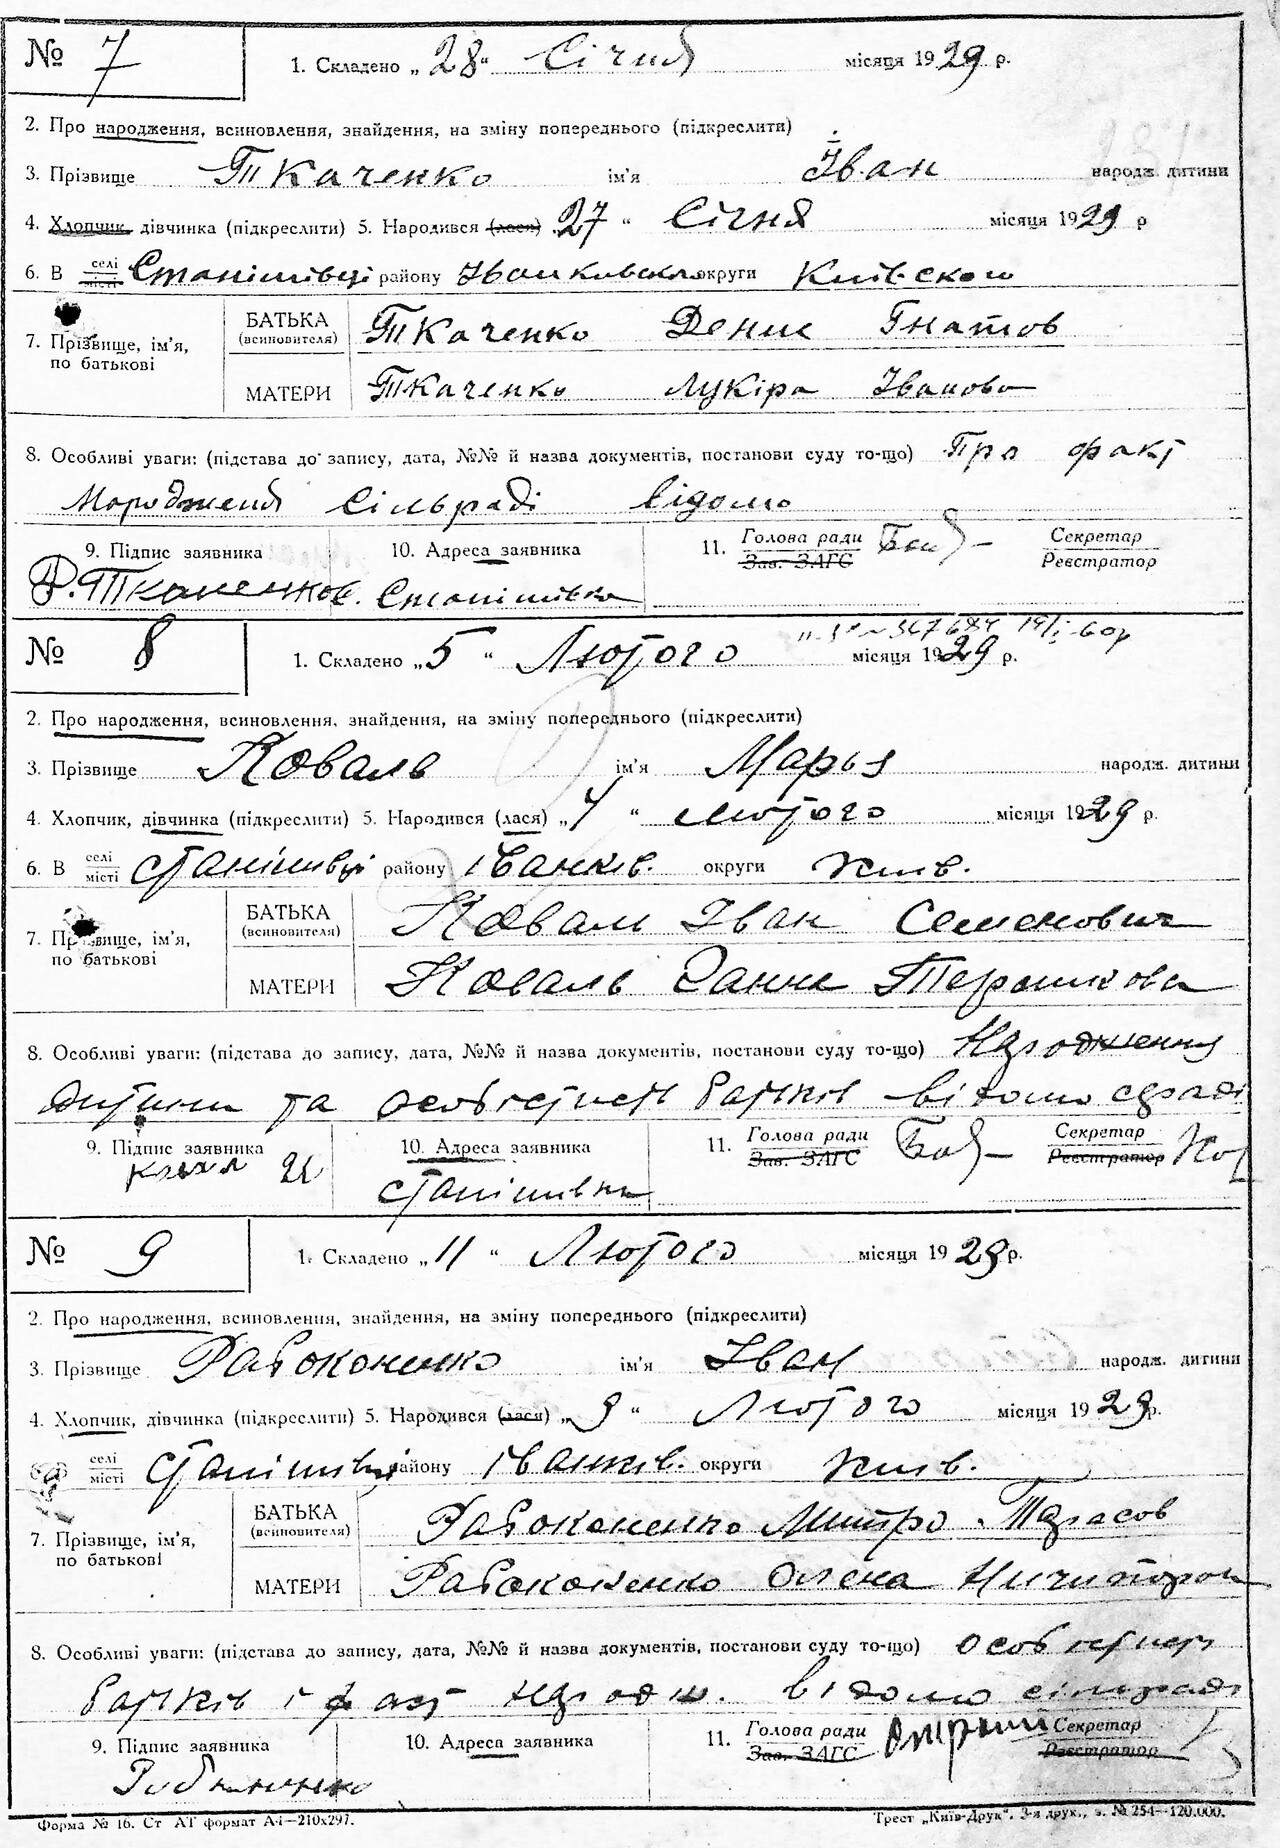 № 7 1. Складено „28“ Січня місяця 1929 р.
2. Про народження, всиновлення, знайдення, на зміну попереднього (підкреслити)
3. Прізвище Ткаченко ім'я Іван народж. дитини
4. Хлопчик, дівчинка (підкреслити) 5. Народився (лася) 27 “ Січня місяця 1929 р
6. В селі місті Станішівці району Іванковского округи Київского
7. Прізвище, ім'я, по батькові
БАТЬКА (всиновителя) Ткаченко Денис Гнатов
МАТЕРИ Ткаченко Лукіра Іванова
8. Особливі уваги: (підстава до запису, дата, №№ й назва документів, постанови суду то-що) Про факт
народженя сільраді відомо
9. Підпис заявника 10. Адреса заявника 11. Голова ради Зав. ЗАГС Секретар Реєстратор
с. Станішівка
№ 8 1. Складено „5 “ Лютого місяця 1929 р.
2. Про народження, всиновлення, знайдення, на зміну попереднього (підкреслити)
3. Прізвище Коваль ім'я Марья народж. дитини
4. Хлопчик, дівчинка (підкреслити) 5. Народився (лася) „4 “ лютого місяця 1929 р.
6. В селі місті Станішівці району Іванків. округи Київ.
7. Прізвище, ім'я, по батькові
БАТЬКА (всиновителя) Коваль Іван Семенович
МАТЕРИ Коваль Ганна
8. Особливі уваги: (підстава до запису, дата, №№ й назва документів, постанови суду то-що) Народження
дитини та особістість батьків відомо сраді
9. Підпис заявника 10. Адреса заявника 11. Голова ради Зав. ЗАГС Секретар Реєстратор
Станішівка
№ 9 1. Складено „11 “ Лютого місяця 1929 р.
2. Про народження, всиновлення, знайдення, на зміну попереднього (підкреслити)
3. Прізвище Рабоконенко ім'я Іван народж. дитини
4. Хлопчик, дівчинка (підкреслити) 5. Народився (лася) „9 “ Лютого місяця 1929 р.
6. В селі місті Станішівці району Іванків. округи Київ.
7. Прізвище, ім'я, по батькові
БАТЬКА (всиновителя) Рабоконенко Митро Тарасов
МАТЕРИ Рабоконенко Олена
8. Особливі уваги: (підстава до запису, дата, №№ й назва документів, постанови суду то-що) особістість
батьків і факт народж. відомо сільраді
9. Підпис заявника 10. Адреса заявника 11. Голова ради Зав. ЗАГС Секретар Реєстратор
Форма № 16. Ст АТ формат А4—210х297. Трест „Київ-Друк“. 3-я друк., з. № 254—120.000.